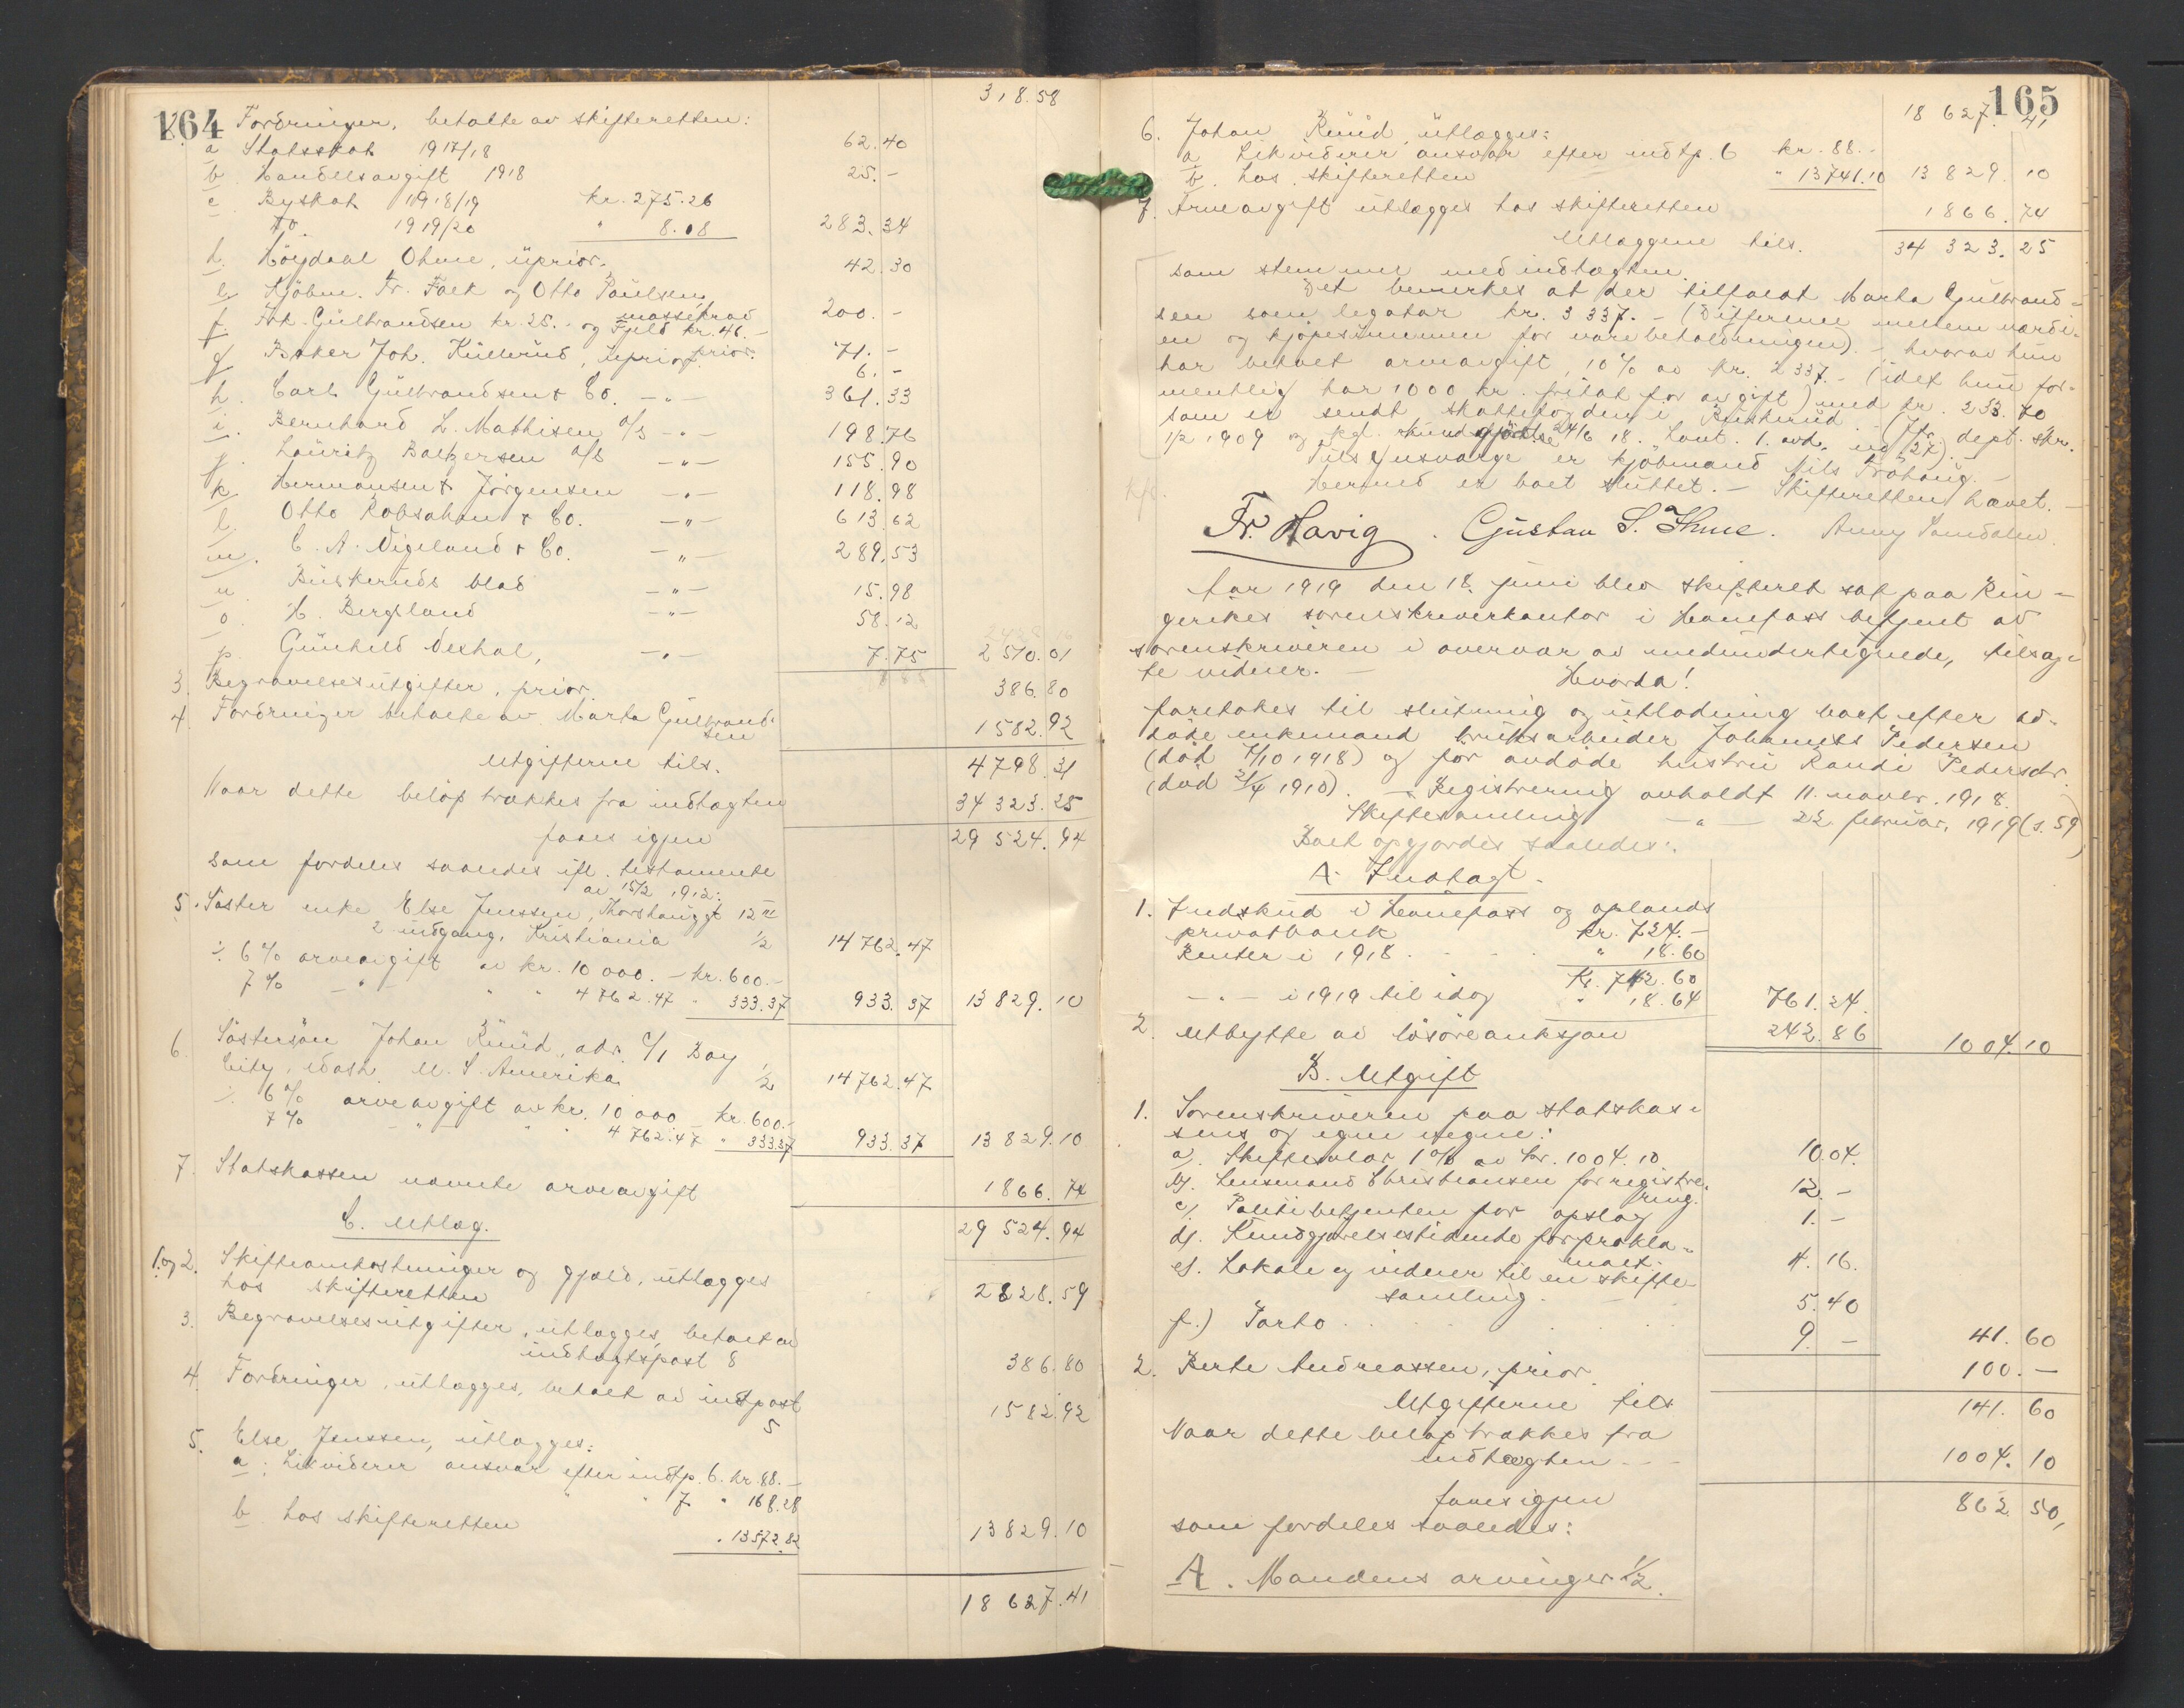 164
318.58
2. Fordringer, betalte av skifteretten:
a Statsskat 1917/18 62.40
b. Handelsavgift 1918 25.-
c. Byskat 1918/19 kr. 275.26
do. 1919/20 " 8.08 283.34
d. Höydaal Ohme, uprior. 42.30
e. Kjöbm. Fr. Falk og Otto Paulsen, massekrav 200.-
f. Frk. Gulbrandsen kr. 25.- og Fjeld kr. 46.- prior. 71.-
g. Baker Joh. Kullerud, uprior. 6.-
h. Carl Gulbrandsen & Co. -"- 361.33
i. Bernhard L. Mathisen A/S -"- 198.76
j. Lauritz Baltzersen A/S -"- 155.90
k. Hermansen & Jörgensen -"- 118.98
l. Otto Robsahm & Co. -"- 613.62
m. C. A. Nigeland & Co. -"- 289.53
n. Buskeruds blad -"- 15.98
o. H. Bergland -"- 58.12
p. Gunhild Vexhal, -"- 7.75 2510.01
3. Begravelsesutgifter, prior. 386.80
4. Fordringer betalte av Marta Gulbrand-
sen 1582.92
Utgifterne tils. 4798.31
Naar dette belöp trækkes fra indtægten 34 323.25
faaes igjen 29 524.94
som fordeles saaledes ifl. testamente
av 15/2 1912:
5. Söster enke Else Jenssen, Thorshauggt 12
2 indgang, Kristiania 1/2 14 762.47
÷ 6 % arveavgift av kr. 10 000.- kr. 600.-
7 % -"- " " 4 762.47 " 333.37 933.37 13 829.10
6. Söstersön Johan Ruud, adr. C/1 Bay
City, Wash. U. S. Amerika 1/2 14 762.47
÷ 6 % arveavgift av kr. 10 000 kr. 600.-
7 % -"- " " 4 762.47 " 333.37 933.37 13 829.10
7. Statskassen nævnte arveavgift 1866.74
29 524.94
C. Utlæg.
1 og 2. Skifteomkostninger og gjæld, utlægges
hos skifteretten 2828.59
3. Begravelsesutgifter, utlægges, betalt av
indtægtspost 8 386.80
4. Fordringer, utlægges, betalt av indt.post
5 1582.92
5. Else Jenssen, utlægges:
a. Likviderer ansvar efter indtp. 6. kr. 88.-
" " 7 " 168.28
b. hos skifteretten " 13572.82 13829.10
18 627.41
165
18 627.41
6. Johan Ruud, utlægges:
a Likviderer ansvar efter indtp. 6 kr. 88.-
b. hos skifteretten " 13741.10 13 829.10
7. Arveavgift utlægges hos skifteretten 1866.74
Utlæggene tils. 34 323.25
som stemmer med indtægten.
Det bemerkes at der tilfaldt Marta Gulbrand-
sen som legatar kr. 3 337.- (Difference mellem værdi-
en og kjöpesummen for varebeholdningen). - hvorav hun
har betalt arveavgift, 10% av kr. 2 337.- (idet hun for-
mentlig har 1000 kr. fritat for avgift) med kr. 233.70
som er sendt skattefogden i Buskerud. (Jfr. dept. skr.
1/2 1909 og kgl. kundgjörelse 24/6 18. Lovt. 1. avd. nr 27).
Tilsynsværge er kjöbmand Nils Fröhaug. -
Hermed er boet sluttet. - Skifteretten hævet. -
Fr. Havig. Gustav S. Thue. Anny Samdalen.
Aar 1919 den 18. juni blev skifteret sat paa Rin-
gerikes sorenskriverkontor i Hönefoss betjent av
sorenskriveren i overvær av medundertegnede, tilsag-
te vidner. - Hvorda!
foretokes til slutning og utlodning boet efter av-
döde enkemand bruksarbeider Johannes Pedersen
(död 7/10 1918) og för avdöde hustru Randi Pedersdr.
(död 21/4 1910). - Registrering avholdt 11. novbr. 1918.
Skiftesamling -"- 22. februar, 1919 (s. 59)
Boet opgjordes saaledes:
A. Indtægt.
1. Indskud i Hönefoss og oplands
privatbank kr. 724.-
Renter i 1918 " 18.60
Kr. 742.60
-"- i 1919 til idag " 18.64 761.24
2. Utbytte av lösöreauksjon 242.86 1004.10
B. Utgift
1. Sorenskriveren paa statskas-
sens og egne vegne:
a). Skiftesalær 1% av kr. 1004.10 10.04.
b). Lensmand Christiansen for registre-
ring. 12.-
c). Politibetjenten for opslag 1.-
d). Kundgjörelsestidende for prokla-
maet. 4.16.
e). Lokale og vidner til en skifte-
samling. 5.40
f.) Porto 9.- 41.60
2. Berte Andreassen, prior. 100.-
Utgifterne tils 141.60
Naar dette belöp trækkes fra
indtægten 1004.10
faaes igjen 862.50,
som fordeles saaledes:
A. Mandens arvinger 1/2.